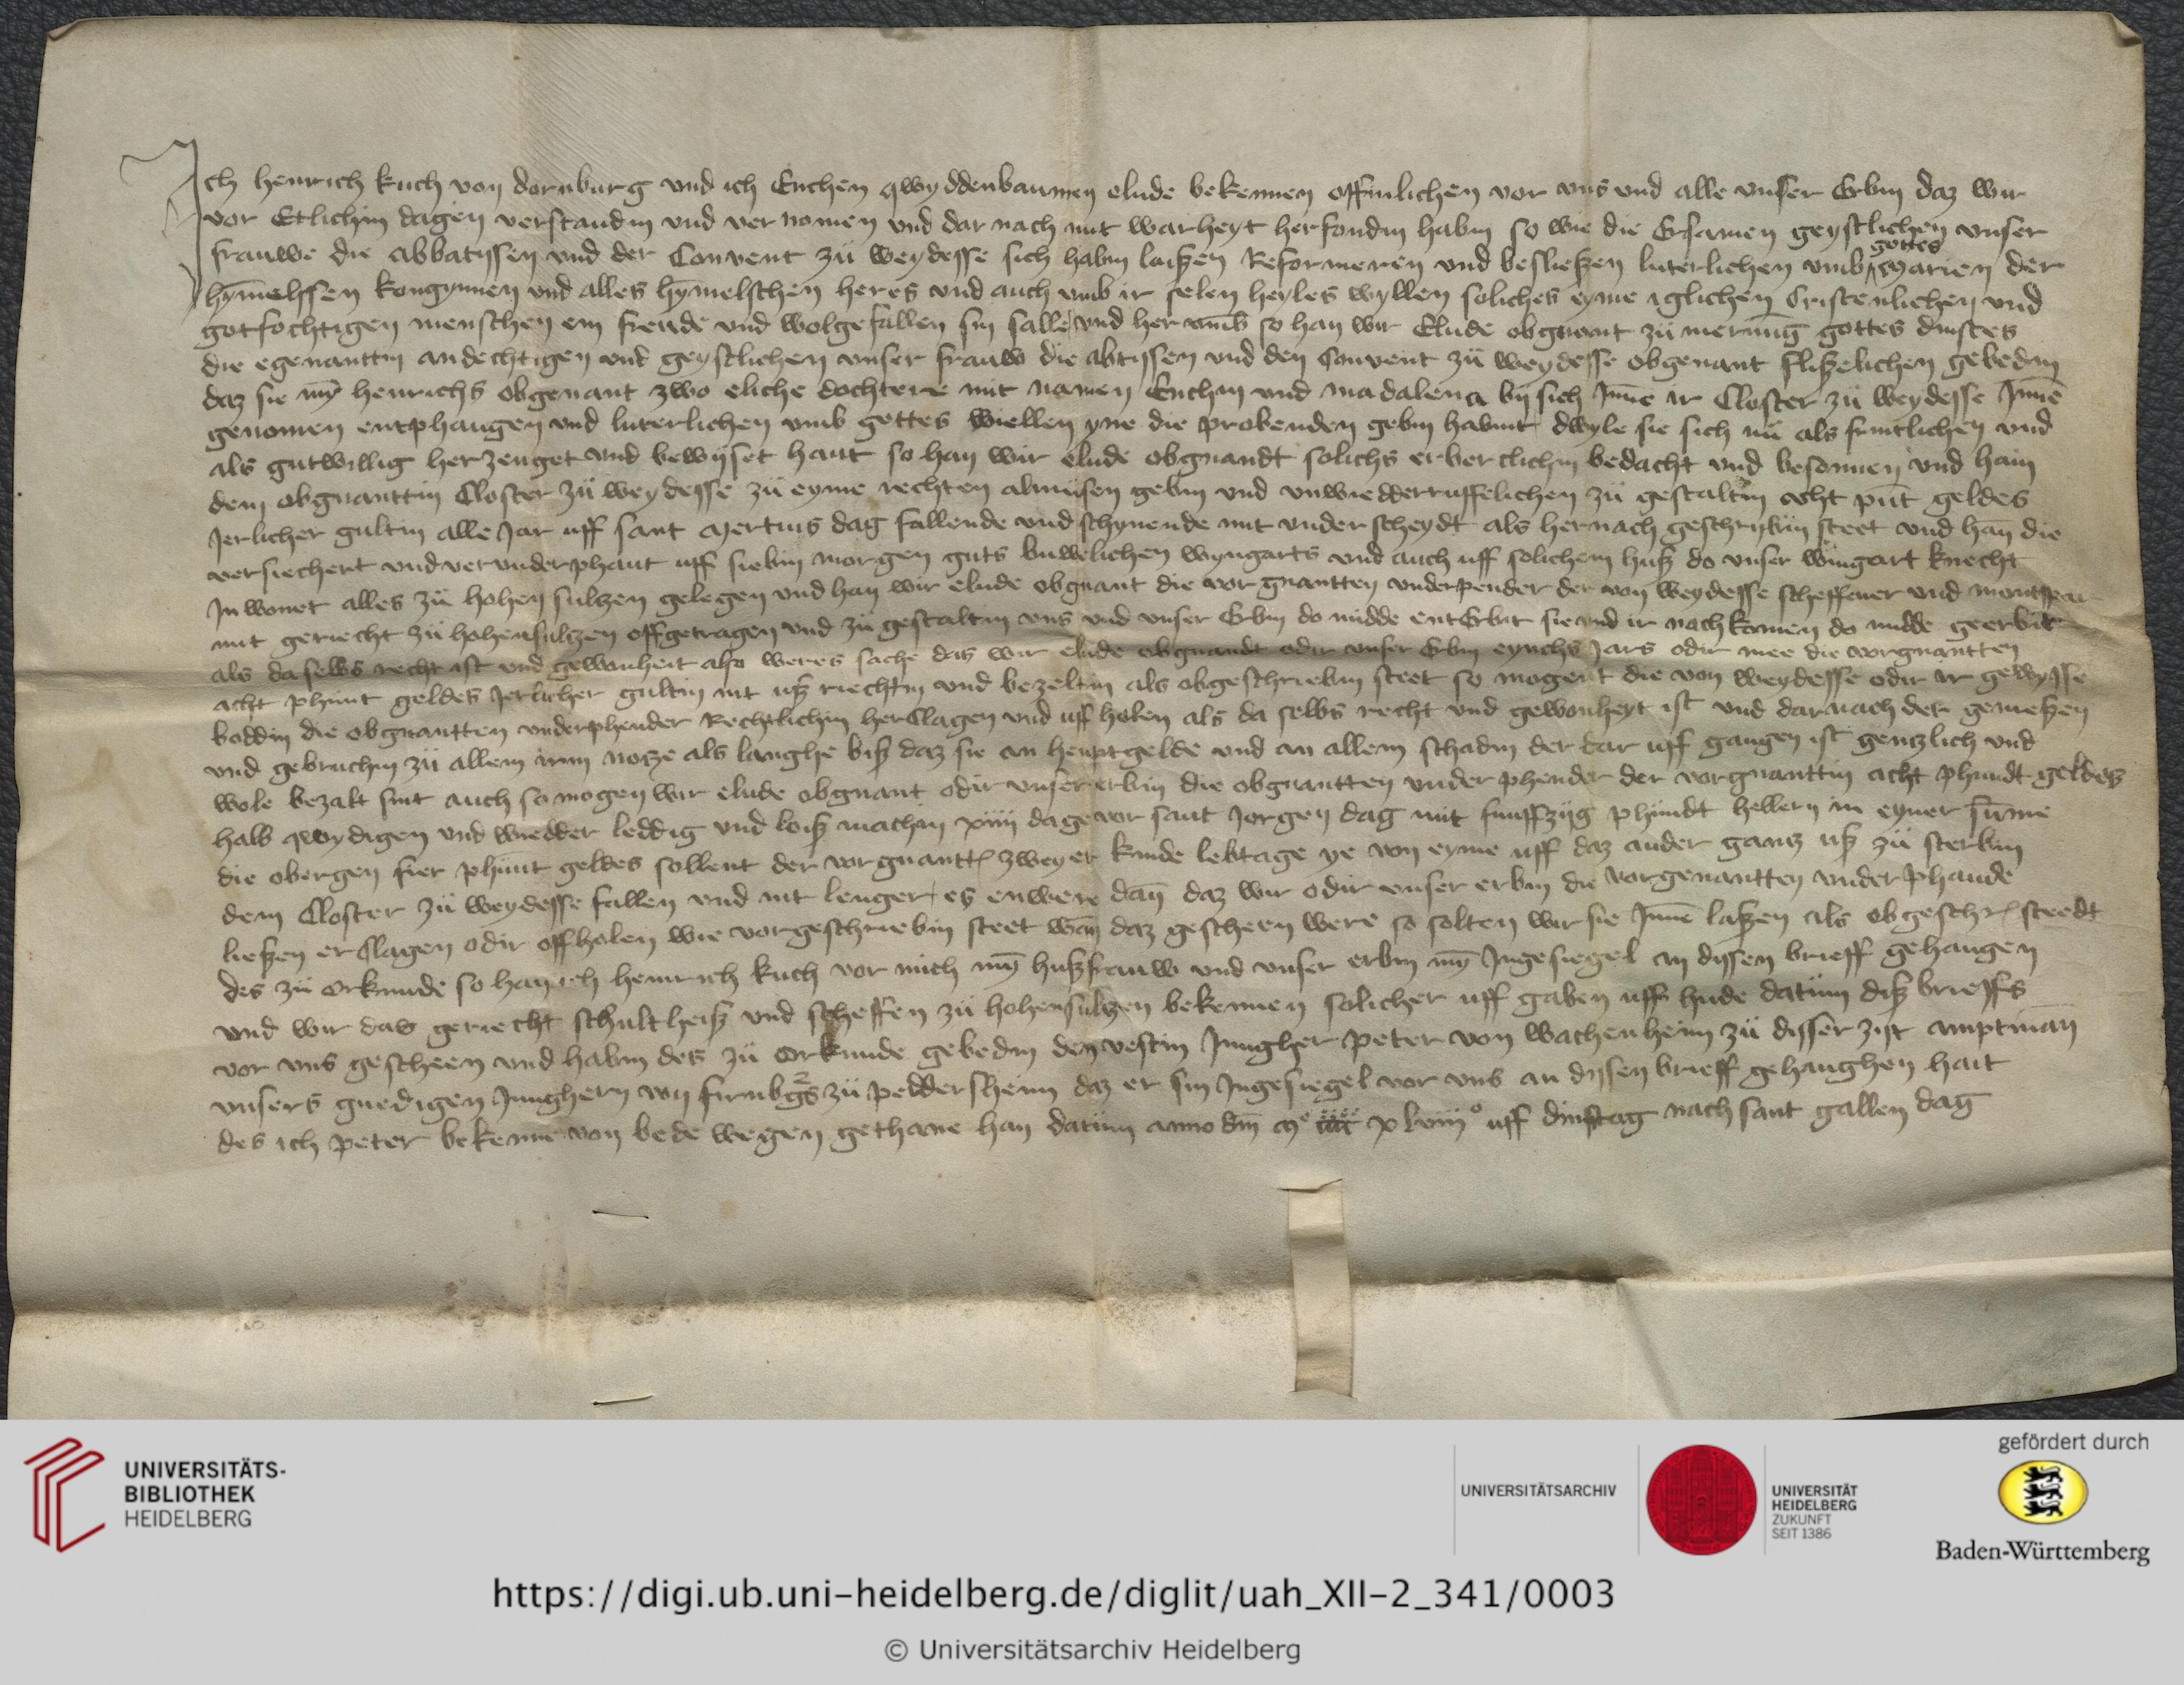 Ich henrich kuch von dornburg vnd ich Enchen qwyddenbaumen elude bekennen offinlichen vor vns vnd alle vnser Erbin daz wir
vor Etlichin dagen verstandin vnd ver nomen vnd dar nach mit warheyt herfondin habin so wie die Ersamen geystlichen vnser
frauwe die abbatyssen vnd der Convent zü weydesse sich habin laißen Reformeren vnd besließen luterlichen vmb gottes Marien der
hymelssen kongynnen vnd alles hymelschen heres vnd auch vmb ir selen heyles wyllen soliches eyme iglichen Cristenlichen vnd
gotfochtigen menschen ein freude vnd wolgefallen sin salle vnd her vmb so han wir Elude obgnant zü merung gottes dinstes
die egenanttin andechtigen vnd geystlichen vnser frauw die abtyssen vnd den Convent zü weydesse obgenant flißelichen gebedin
daz sie myn henrichs obgenant zwo eliche dochtere mit namen Enchin vnd madalena by sich Inne ir Closter zü weydesse Inne
genomen entphangen vnd luterlichen vmb gottes wiellen yne die probenden gebin habint dwyle sie sich nü als fruntlichen vnd
als gutwillig herzeuget vnd bewyset hant so han wir elude obgnandt solichs erberclichin bedacht vnd besonnen vnd hain
dem obgnanttin Closter zü weydesse zü eyme rechten almüsen gebin vnd vnwiedderruffelichen zü gestaltin acht punt geldes
Jerlicher gultin alle Jar uff sant Mertins dag fallende vnd schynende mit vnderscheydt als hernach geschrybin steet vnd han die
versiechert vnd vervnderphant uff siebin morgen guts buwelichen wyngarts vnd auch uff solichem huß do vnser wingart knecht
In wonet alles zü hohen sulzen gelegen vnd han wir elude obgnant die vor gnantten vnderpender der von weydesse scheffener vnd
mit geriecht zü hohensultzen offgetragen vnd zü gestaltin vns vnd vnser Erbin do midde entErbit sie vnd ir nachkomen do midde geerbit
als da selbs recht ist vnd gewonheit also weres sache das wir elude obgnandt odir vnser Erbin eynchs Jars odir mee die vorgnantten
acht phunt geldes Jerlicher gultin nit uß riechtin vnd bezeltin als obgeschriebin steet so mogent die von weydesse odir ir gewysse
boddin die obgnantten vnderphender Rechtlichin herclagen vnd uff holen als da selbs recht vnd gewonheyt ist vnd darnach der genießen
vnd gebruchin zü allem irm notze als langhe biß daz sie an heuptgelde vnd an allem schadin der dar uff gangen ist gentzlich vnd
wole bezalt sint auch so mogen wir elude obgnant odir vnser erbin die obgnantten vnder phender der vorgnanttin acht phundt geldes
halb qwydigen vnd wiedder leddig vnd loiß machin xiiii dage vor sant Jorgen dag mit funffzyg phundt hellern in eyner summe
die obergen fier phunt geldes sollent der vorgnantt zweyer kinde lebtage ye von eyme uff daz ander gantz uß zü sterbin
dem Closter zü weydesse fallen vnd nit lenger es enwere dan daz wir odir vnser erbin die vorgenantten vnderphande
ließen erclagen odir offholen wie vorgeschriebin steet wan daz gescheen were so solten wir sie Inne laßen als obgeschr steedt
des zü orkunde so han ich heinrich kuch vor mich myn hußfrauw vnd vnser erbin myn Ingesiegel an dissen brieff gehangen
vnd wir das geriecht schultheiß vnd scheffen zü hohensultzen bekennen solicher uff gaben uff hude datum diß brieffs
vor vns gescheen vnd habin des zü Orkunde gebedin den vestin Jungher Peter von wachenheim zü disser zijt amptman
vnsers gnedigen Junghern von firnbgs zü peddersheim daz er sin Ingesiegel vor vns an dysen brieff gehanghen hait
des ich peter bekenne von bede wegen gethane han datum anno dm Mo cccc xlviii o uff dinstag nach sant gallen dag
UNIVERSITÄTS-
BIBLIOTHEK
HEIDELBERG
UNIVERSITÄTSARCHIV
UNIVERSITÄT
HEIDELBERG
ZUKUNFT
SEIT 1386
gefördert durch
Baden-Württemberg
https://digi.ub.uni-heidelberg.de/diglit/uah_XII-2_341/0003
© Universitätsarchiv Heidelberg